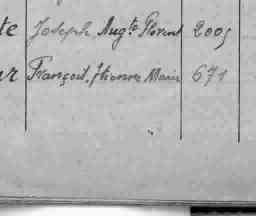 te Joseph, Augte Florent 2005
ur François, Etienne Marie 671